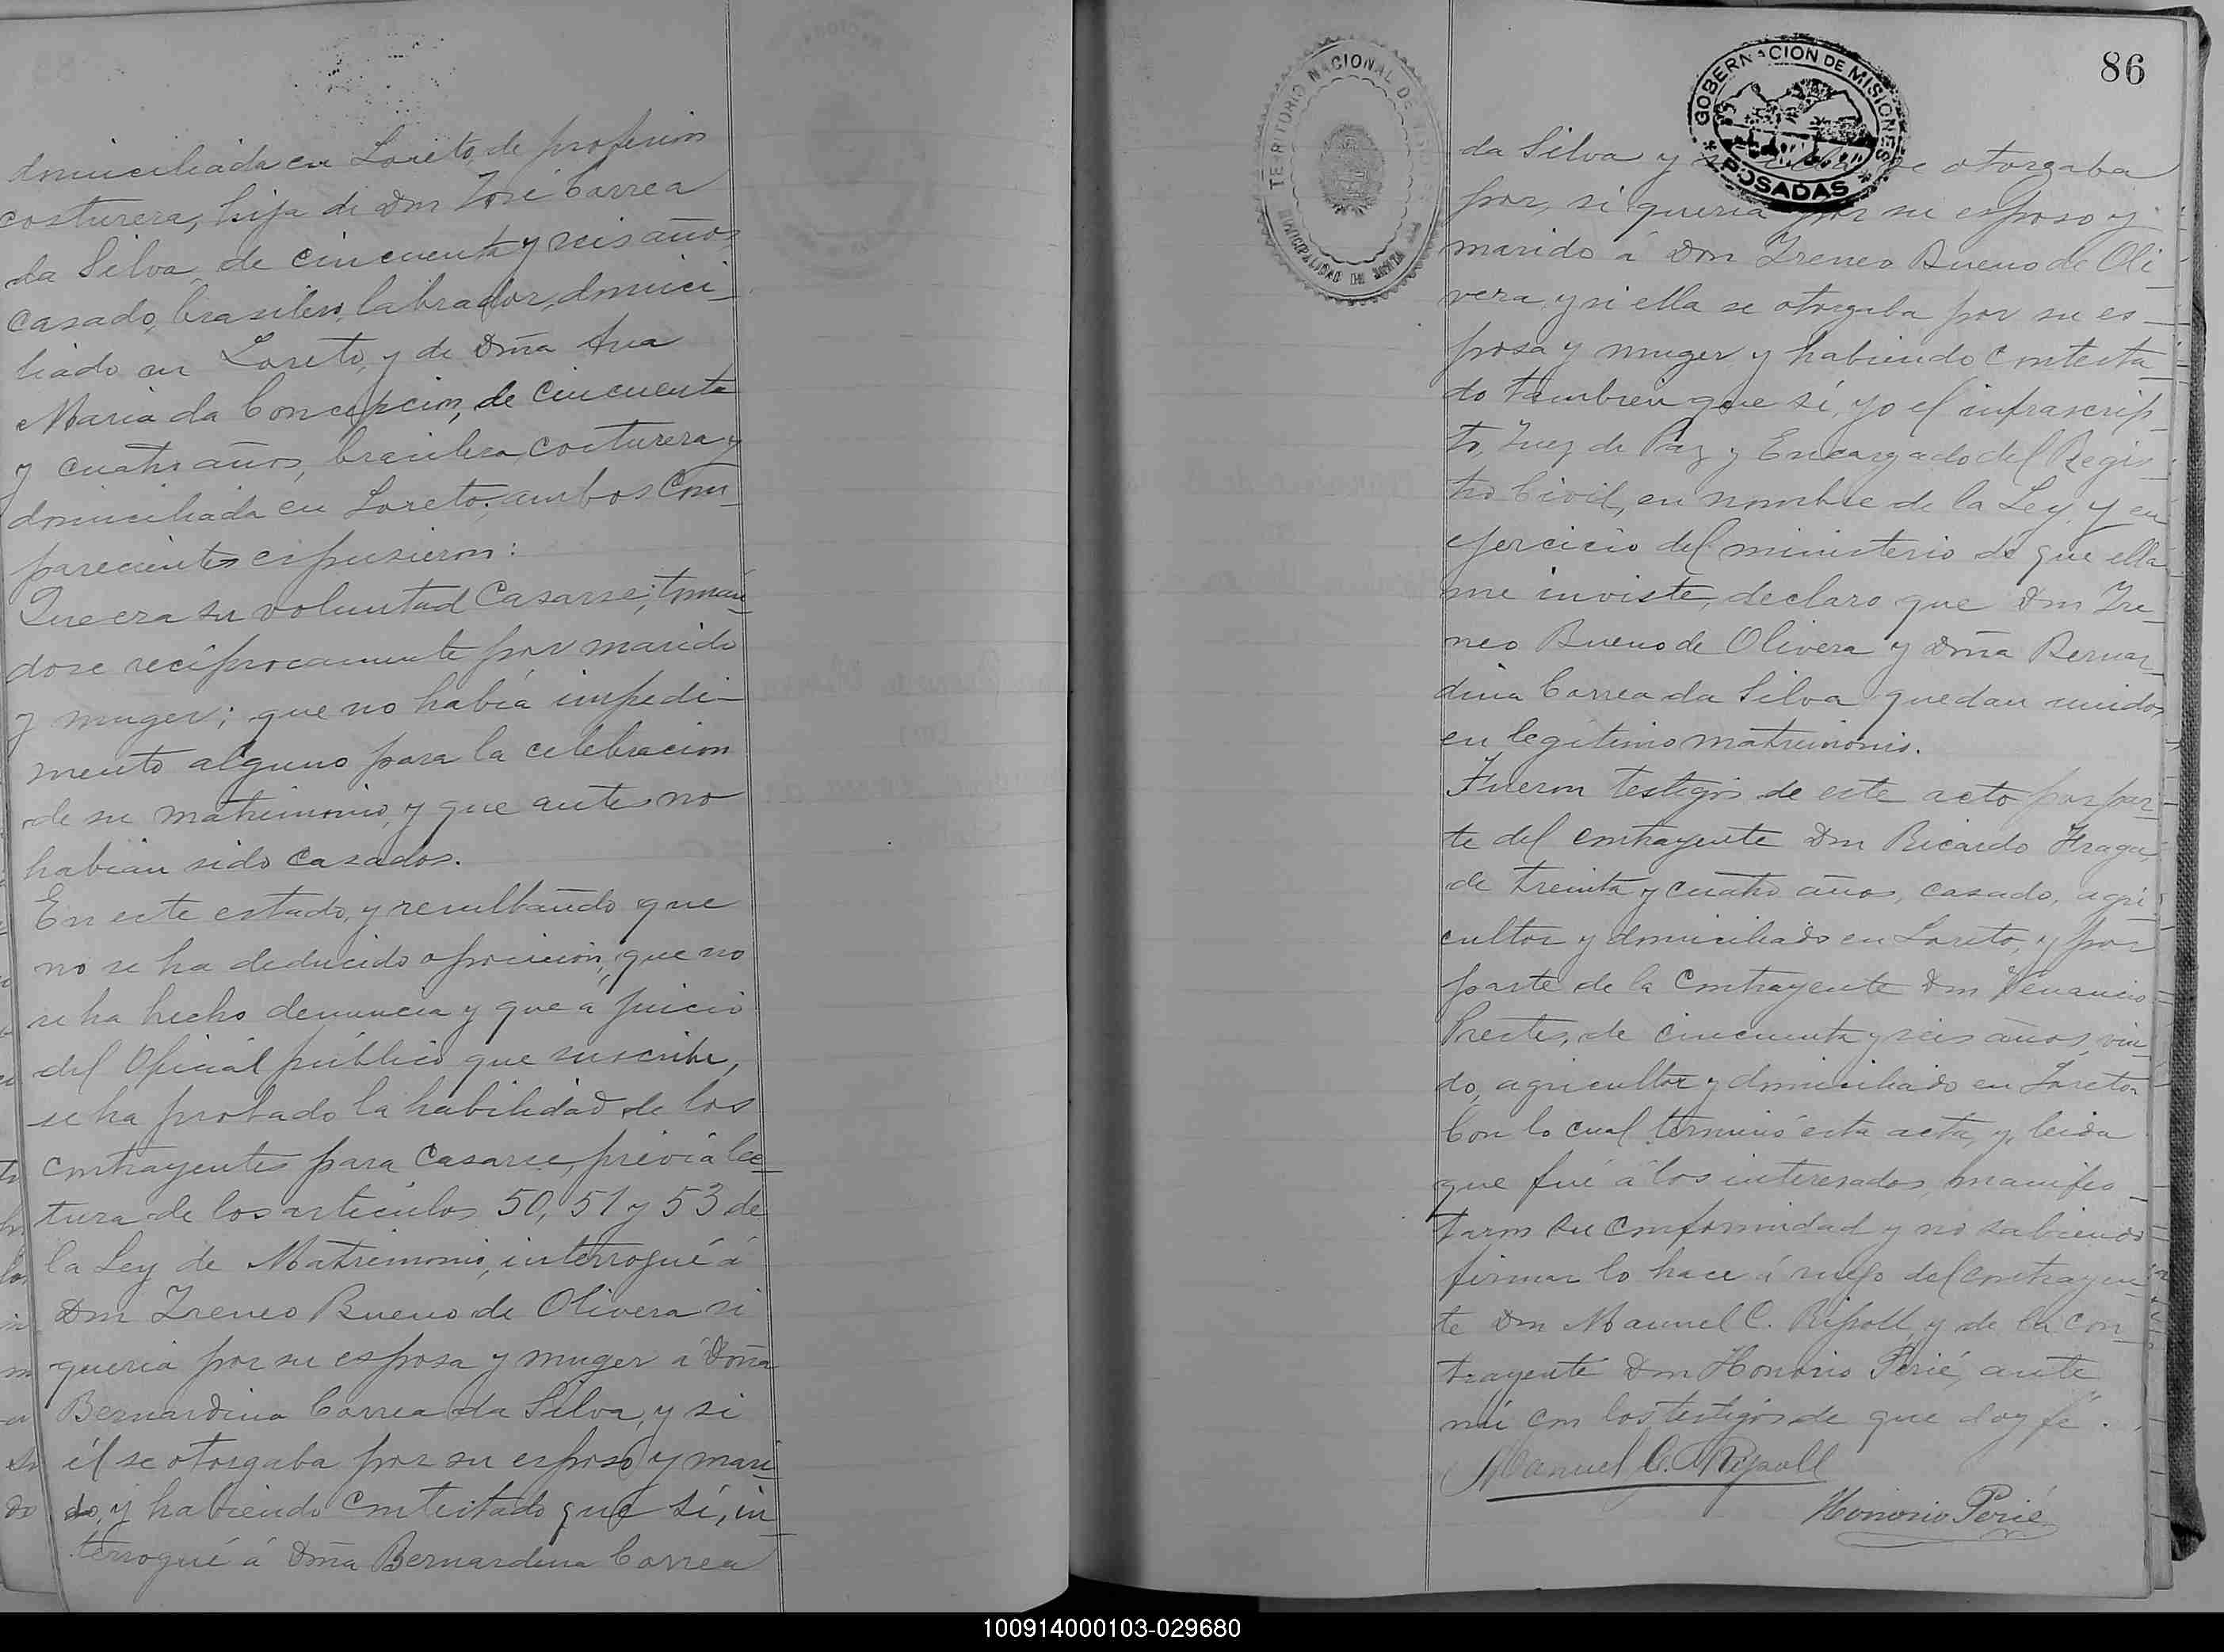 domiciliada en Loreto, de profesion
costurera, hija de Don José Correa
da Silva, de cincuenta y seis años
casado, brasilero, labrador, domici-
liado en Loreto, y de Dña Ana
Maria da Concepcion, de cincuenta
y cuatro años, brasilera, costurera y
domiciliada en Loreto; ambos com-
parecientes expusieron:
Que era su voluntad casarse, tomán-
dose recíprocamente por marido
y muger; que no había impedi-
mento alguno para la celebracion
de su matrimonio, y que antes no
habian sido casados.
En este estado, y resultando que
no se ha deducido oposicion, que no
se ha hecho denuncia y que á juicio
del Oficial público que suscribe,
se ha probado la habilidad de los
contrayentes para casarse, prévia lec-
tura de los articulos 50, 51 y 53 de
la Ley de Matrimonio, interrogué á
Don Ireneo Bueno de Olivera si
queria por su esposa y muger á Doña
Bernardina Correa da Silva, y si
él se otorgaba por su esposo y mari-
do, y habiendo contestado que sí, in-
terrogué á Dña Bernardina Correa
86
GOBERNACION DE MISIONES
POSADAS
TERRITORIO NACIONAL DE MISIONES
MUNICIPALIDAD DE
da Silva y se otorgaba
por, si queria por su esposo y
marido á Don Ireneo Bueno de Oli
vera, y si ella se otorgaba por su es-
posa y muger y habiendo contesta-
do tambien que sí, yo el infrascrip-
to, Juez de Paz y Encargado del Regis-
tro Civil, en nombre de la Ley, y en
ejercicio del ministerio de que ella
me inviste, declaro que Don Ire-
neo Bueno de Olivera y Dña Bernar-
dina Correa da Silva quedan unidos
en legítimo matrimonio.
Fueron testigos de este acto por par-
te del contrayente Don Ricardo Fraga,
de treinta y cuatro años, casado, agri-
cultor y domiciliado en Loreto, y por
parte de la contrayente Don Venancio
Prestes, de cincuenta y seis años, viu-
do, agricultor y domiciliado en Loreto.
Con lo cual terminó esta acta, y, leida
que fué á los interesados, manifes-
taron su conformidad y no sabiendo
firmar lo hace á ruego del contrayen-
te Don Manuel C. Ripoll, y de la con-
trayente Don Honorio Perié, ante
mí con los testigos de que doy fé.
Manuel C. Ripoll
Honorio Perié
100914000103-029680